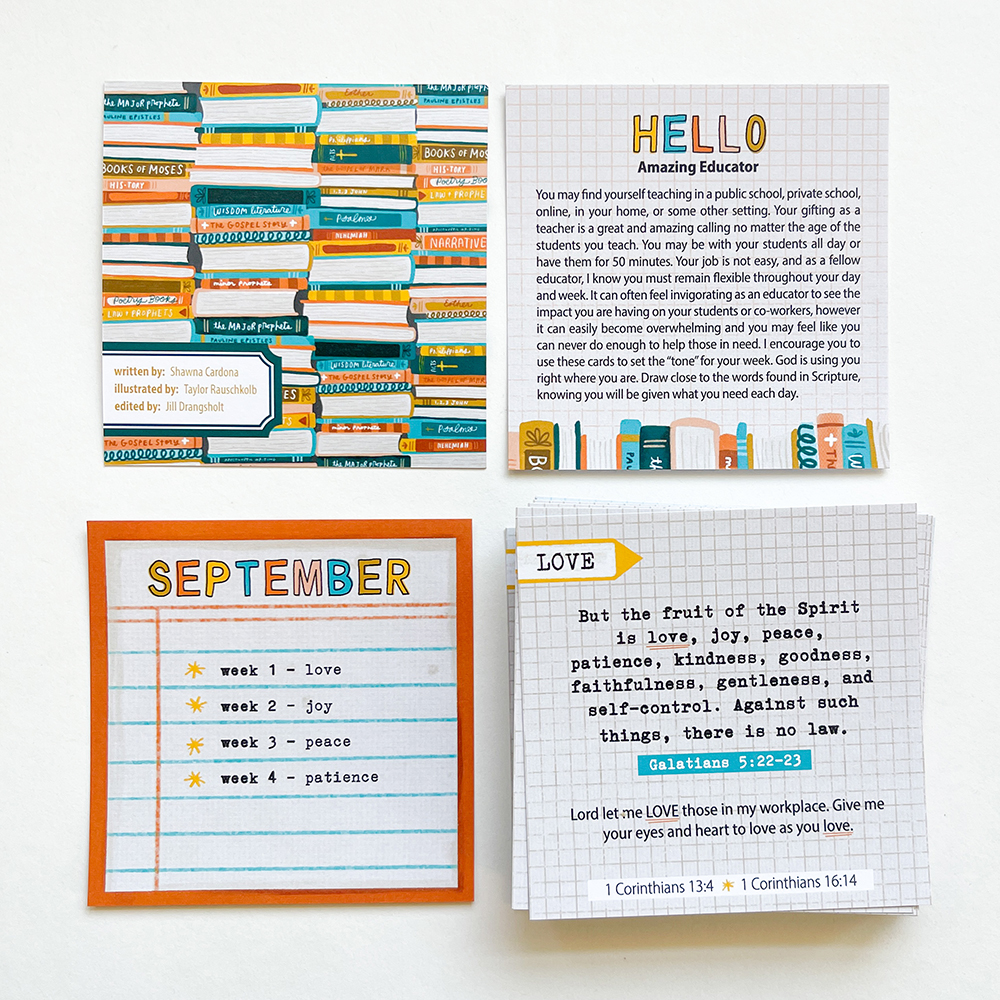 the MAJOR prophets
PAULINE EPISTLES
BOOKS OF MOSES
HIS-TORY
WISDOM literature
The GOSPEL STORY
minor prophets
Poetry Books
LAW & PROPHETS
the MAJOR prophets
PAULINE EPISTLES
Esther
Philippians
THE GOSPEL OF MARK
1,2,3 JOHN
Psalms
NEHEMIAH
PAULINE EPISTLES
BOOKS OF MOS
HIS-TORY
Poetry Book
LAW & PROPHE
NARRATIVE
Esther
Philippians
1,2,3 JOHN
Psalms
NEHEMIAH
WISDOM literature
THE GOSPEL STORY
minor prophets
the MAJOR prophets
THE GOSPEL STORY
written by: Shawna Cardona
illustrated by: Taylor Rauschkolb
edited by: Jill Drangsholt
HELLO
Amazing Educator
You may find yourself teaching in a public school, private school,
online, in your home, or some other setting. Your gifting as a
teacher is a great and amazing calling no matter the age of the
students you teach. You may be with your students all day or
have them for 50 minutes. Your job is not easy, and as a fellow
educator, I know you must remain flexible throughout your day
and week. It can often feel invigorating as an educator to see the
impact you are having on your students or co-workers, however
it can easily become overwhelming and you may feel like you
can never do enough to help those in need. I encourage you to
use these cards to set the "tone" for your week. God is using you
right where you are. Draw close to the words found in Scripture,
knowing you will be given what you need each day.
SEPTEMBER
week 1 - love
week 2 - joy
week 3 - peace
week 4 - patience
LOVE
But the fruit of the Spirit
is love, joy, peace,
patience, kindness, goodness,
faithfulness, gentleness, and
self-control. Against such
things, there is no law.
Galatians 5:22-23
Lord let me LOVE those in my workplace. Give me
your eyes and heart to love as you love.
1 Corinthians 13:4 1 Corinthians 16:14